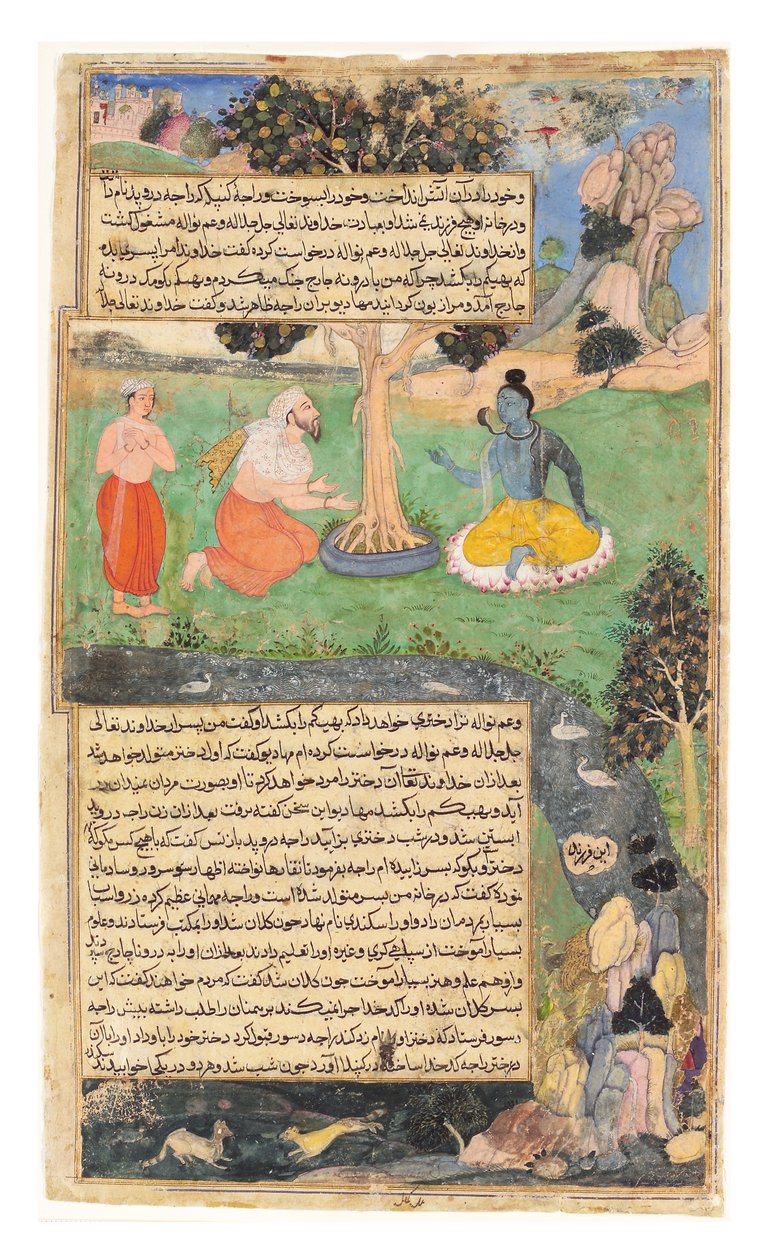 و خود را در آن آتش انداخت و خود را بسوخت و راجهٔ کنپله که راجه دروپد نام داشت
و در خانهٔ او هیچ فرزند نمی شد او بعبادت خداوند تعالی جل جلاله و عم نواله مشغول گشت
و از خداوند تعالی جل جلاله و عم نواله درخواست کرده گفت خداوندا مرا پسری بده
که بهیکم را بکشد چرا که من با درونه چارج جنک میکردم و بهیکم بکومک درونه
چارج آمد و مرا زبون کردانید مهادیو بر آن راجه ظاهر شد و گفت خداوند تعالی جل جلا
و عم نواله ترا دختری خواهد داد که بهیکم را بکشد او گفت من پسر از خداوند تعالی
جل جلاله و عم نواله درخواست کرده ام مهادیو گفت که اول دختر متولد خواهد شد
بعد از آن خداوند تعالی آن دختر را مرد خواهد کرد تا او بصورت مردان بمیدان در
آید و بهیکم را بکشد مهادیو این سخن گفته برفت بعد از آن زن راجه دروپد
آبستن شد و در شب دختری بزایید راجه دروپد با زنش گفت که با هیچ کس مگو که
دختر و بگو که پسر زاییده ام راجه بفرمود تا نقارها نواخته اظهار سور و سرور و شادمانی
نمود و گفت که در خانه من پسر متولد شده است و راجه مهمانی عظیم کرده زر و اسباب
بسیار بمردمان داد و او را سکندی نام نهاد چون کلان شد او را بمکتب فرستادند و علوم
بسیار آموخت از سپاهیکری و غیره او را تعلیم دادند بعد از آن او را به درونا چارج سپردند
و از و هم علم و هنر بسیار آموخت چون کلان شد گفت که مردم خواهند گفت که این
پسر کلان شده او را کدخدا چرا نمیکند برهمنان را طلب داشته پیش راجه
دسور فرستاد که دختر او نامزد کند راجه دسور قبول کرد دختر خود را با و داد او را با آن
دختر راجه کدخدا ساخته در کنپلا آورد چون شب شد و هر دو در یکجا خوابیدند
این فرزند